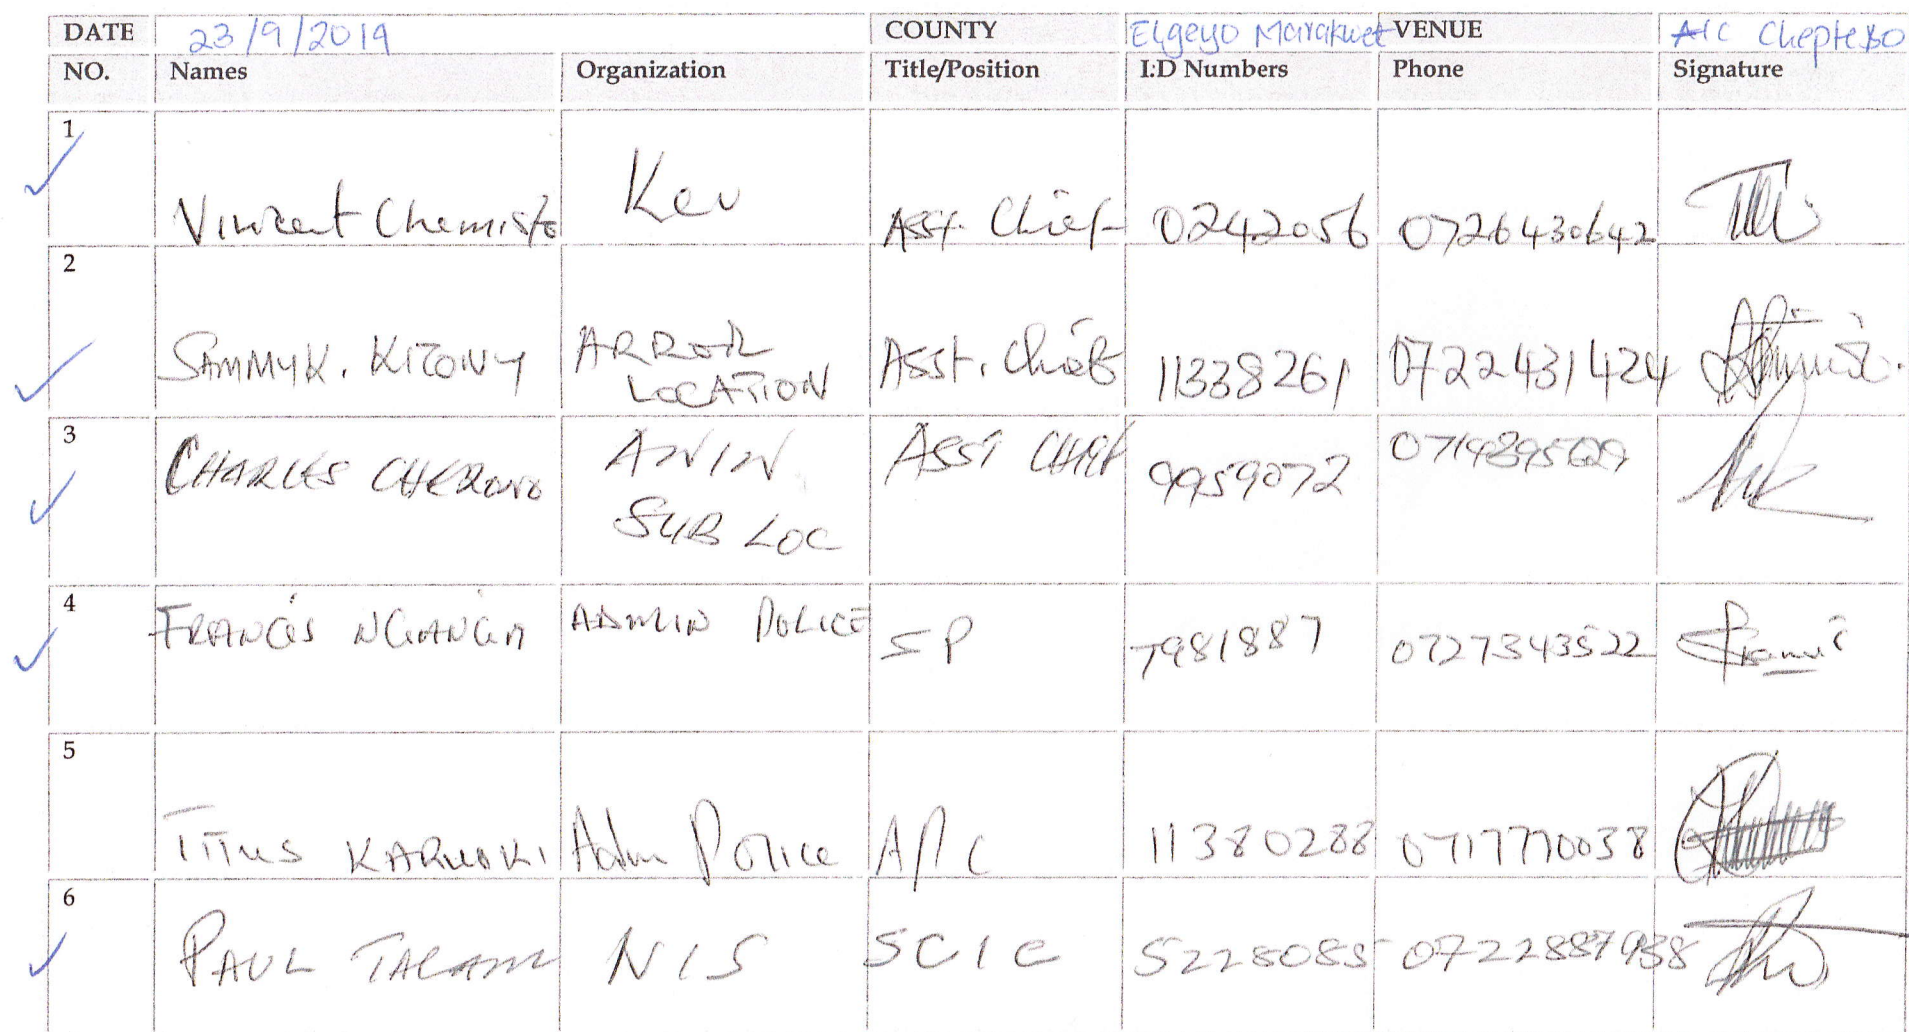 DATE 23/9/2019 COUNTY Elgeyo Marakwet VENUE AIC Cheptebo
NO. Names Organization Title/Position I.D Numbers Phone Signature
1 Vincent Chemisto Keu Asst. Chief 0242056 0726430642
2 SAMMY K. KITONY ARROR LOCATION Asst. Chief 11338261 0722431424
3 CHARLES CHERONO ANIN SUB LOC ASST CHIEF 9959072
4 FRANCIS NGANGA ADMIN POLICE SP 7981887 0727343522
5 TITUS KARIUKI Adm Police APC 11380288 0717770038
6 PAUL TALAM NIS SCIC 5228085 0722887938